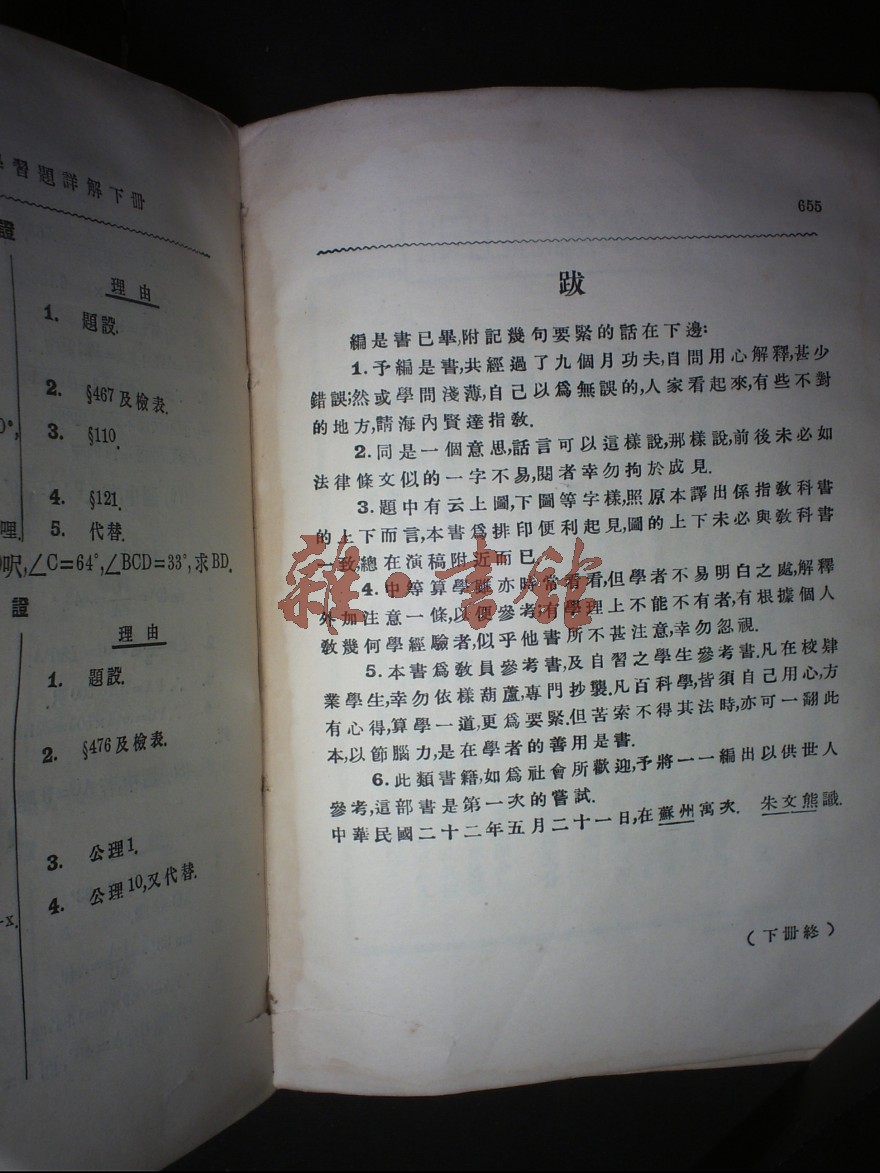 習題詳解下冊
證
理由
1. 題設.
2. §467及檢表.
3. §110.
4. §121.
5. 代替.
呎,∠C=64°,∠BCD=33°,求BD.
證
理由
1. 題設.
2. §476及檢表.
3. 公理1.
4. 公理10,又代替.
655
跋
編是書已畢,附記幾句要緊的話在下邊:
1.予編是書,共經過了九個月功夫,自問用心解釋,甚少
錯誤;然或學問淺薄,自己以爲無誤的,人家看起來,有些不對
的地方,請海內賢達指教.
2.同是一個意思,話言可以這樣說,那樣說,前後未必如
法律條文似的一字不易,閱者幸勿拘於成見.
3.題中有云上圖,下圖等字樣,照原本譯出係指教科書
的上下而言,本書爲排印便利起見,圖的上下未必與教科書
一致,總在演稿附近而已.
4.中等算學雖亦時常看看,但學者不易明白之處,解釋
外加注意一條,以便參考;有學理上不能不有者,有根據個人
教幾何學經驗者,似乎他書所不甚注意,幸勿忽視.
5.本書爲教員參考書,及自習之學生參考書.凡在校肄
業學生,幸勿依樣葫蘆,專門抄襲.凡百科學,皆須自己用心,方
有心得,算學一道,更爲要緊.但苦索不得其法時,亦可一翻此
本,以節腦力,是在學者的善用是書.
6.此類書籍,如爲社會所歡迎,予將一一編出以供世人
參考,這部書是第一次的嘗試.
中華民國二十二年五月二十一日,在蘇州寓次. 朱文熊識.
(下冊終)
雜·書館